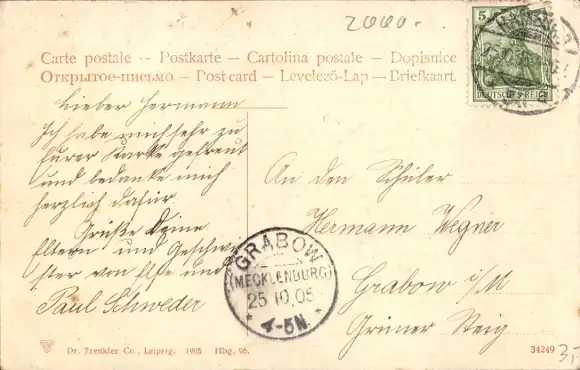 2000.-
Carte postale -- Postkarte – Cartolina postale – Dopisnice
Открытое-письмо – Post card – Levelező-Lap – Briefkaart.
5
DEUTSCHES REICH
Lieber Hermann
Ich habe mich sehr zu
Eurer Karte gefreut
und bedanke mich
herzlich dafür.
Grüße Deine
Eltern und Geschwi-
ster von Else und
Paul Schweder
An den Schüler
Hermann Wegner
Grabow i/M
Grüner Steig
GRABOW
(MECKLENBURG)
25 10.05
* 4-5N. *
Dr. Trenkler Co., Leipzig. 1905 Hbg. 90.
34249
3,-